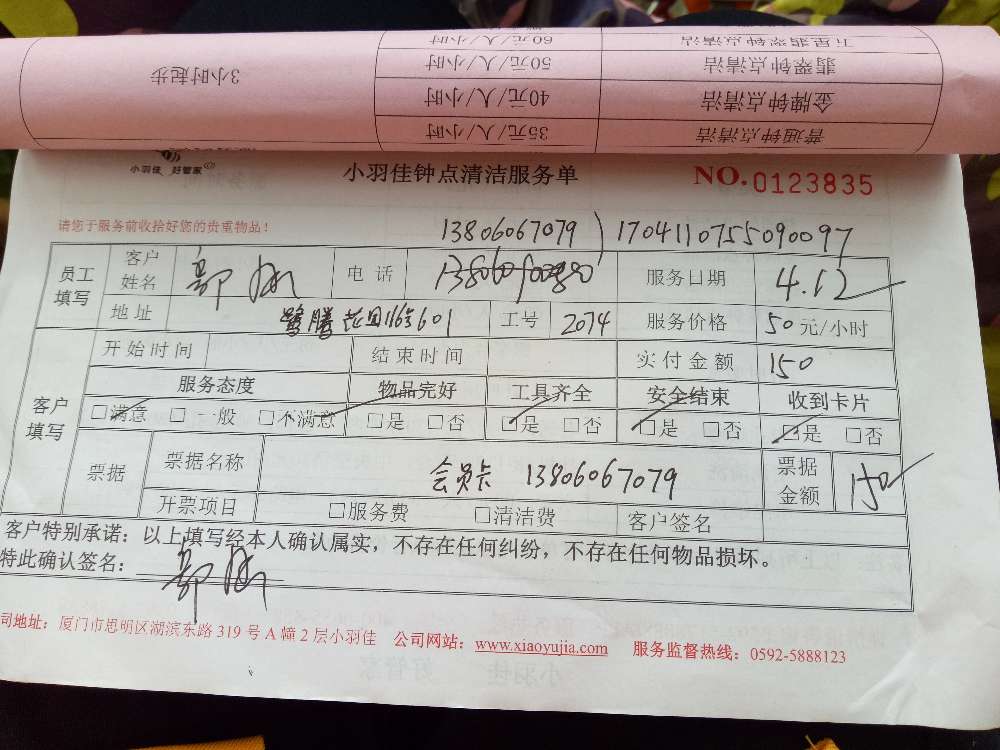 五星翡翠钟点清洁 60元/人/小时
翡翠钟点清洁 50元/人/小时
3小时起步
金牌钟点清洁 40元/人/小时
普通钟点清洁 35元/人/小时
小羽佳 好管家
小羽佳钟点清洁服务单 NO.0123835
请您于服务前收拾好您的贵重物品!
13806067079 ) 1704110755090097
员工填写 客户姓名 郭 电话 服务日期 4.12
地址 鹭腾花园116号601 工号 2074 服务价格 50元/小时
客户填写 开始时间 结束时间 实付金额 150
服务态度 物品完好 工具齐全 安全结束 收到卡片
□满意 □一般 □不满意 □是 □否 □是 □否 □是 □否 □是 □否
票据 票据名称 会员卡 13806067079 票据金额 150
开票项目 □服务费 □清洁费 客户签名
客户特别承诺:以上填写经本人确认属实,不存在任何纠纷,不存在任何物品损坏。
特此确认签名: 郭
司地址:厦门市思明区湖滨东路 319 号 A 幢 2 层小羽佳 公司网站:www.xiaoyujia.com 服务监督热线:0592-5888123